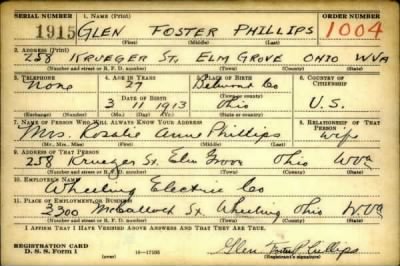 SERIAL NUMBER 1. NAME (Print) ORDER NUMBER
1915 GLEN FOSTER PHILLIPS 1004
(First) (Middle) (Last)
2. ADDRESS (Print)
258 KRUEGER ST. ELM GROVE OHIO WVA
(Number and street or R. F. D. number) (Town) (County) (State)
3. TELEPHONE 4. AGE IN YEARS 5. PLACE OF BIRTH 6. COUNTRY OF CITIZENSHIP
None 27 Co
DATE OF BIRTH
3 11 1913 Ohio U.S.
(Exchange) (Number) (Mo.) (Day) (Yr.) (State or country)
7. NAME OF PERSON WHO WILL ALWAYS KNOW YOUR ADDRESS 8. RELATIONSHIP OF THAT PERSON
Mrs. Rosalie Anne Phillips Wife
(Mr., Mrs., Miss) (First) (Middle) (Last)
9. ADDRESS OF THAT PERSON
258 Krueger St. Elm Grove Ohio WVa
(Number and street or R. F. D. number) (Town) (County) (State)
10. EMPLOYER'S NAME
Wheeling Electric Co
11. PLACE OF EMPLOYMENT OR BUSINESS
2300 St. Wheeling Ohio WVa
(Number and street or R. F. D. number) (Town) (County) (State)
I AFFIRM THAT I HAVE VERIFIED ABOVE ANSWERS AND THAT THEY ARE TRUE.
REGISTRATION CARD
D. S. S. Form 1 Glen Foster Phillips
(Registrant's signature)